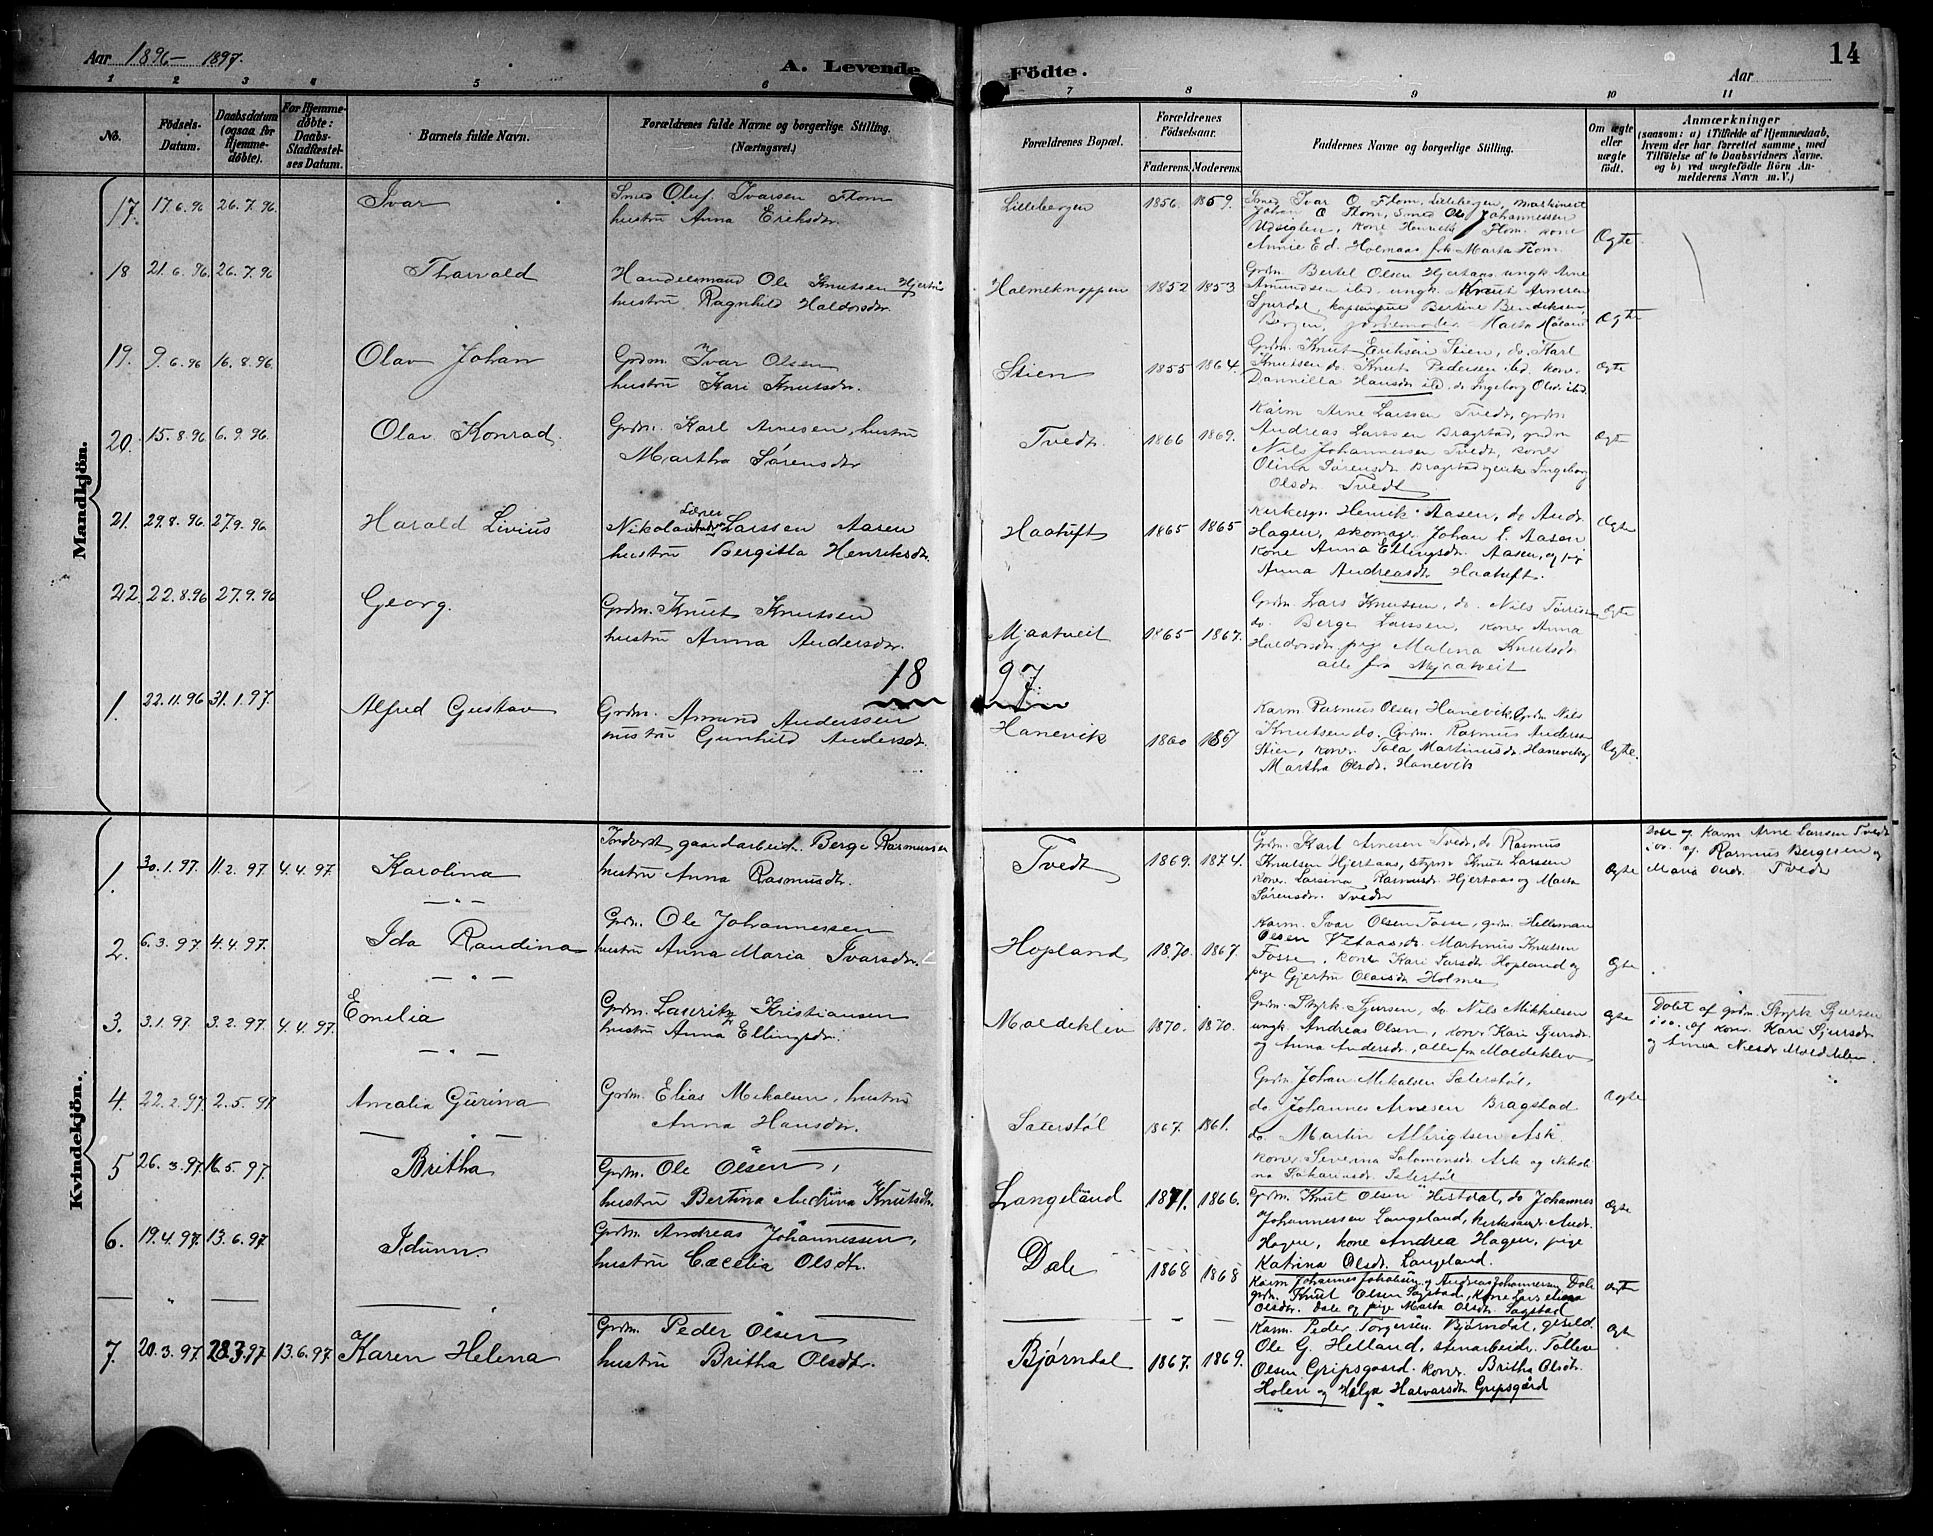 Aar 1896– 1897.
A. Levende Födte.
Aar
14
1 2 3 4 5 6 7 8 9 10 11
No.
Födsels-Datum.
Daabsdatum (ogsaa for Hjemme-döbte).
For Hjemme-döbte: Daabs-Stadfæstel-ses Datum.
Barnets fulde Navn.
Forældrenes fulde Navne og borgerlige Stilling.
(Næringsvei.)
Forældrenes Bopæl.
Forældrenes Födselsaar.
Faderens. Moderens.
Faddernes Navne og borgerlige Stilling.
Om ægte eller uægte födt.
Anmærkninger
(saasom: a) i Tilfælde af Hjemmedaab,
hvem der har forrettet samme, med
Tilföielse af to Daabsvidners Navne.
og b) ved uægtefödte Börn An-
melderens Navn m. V.)
Mandkjön.
17. 17.6.96 26.7.96. Ivar
Smed Oluf Ivarsen Flom
hustru Anna Eriksdr.
Lillebergen 1856. 1859.
Smed Ivar O. Flom, Lillebergen, maskinist
Johan O Flom, Smed Ole Johannessen
Udsigten, kone Henrich Flom. kone
Annie Ed. Holmaas frk Marta Flom.
Ogte
18 21.6.96 26.7.96 Tharvald
Handelsmand Ole Knutsen Hjertaas
hustru Ragnhild Haldorsdr.
Halmeknappen 1852 1853
Grdm. Bertel Olsen Hjertaas ungk. Arne
Amundsen ibd. ungk. Knut Arnesen
Bertine Bendiksen,
Bergen, jordemoder Marta
Ogte
19. 9.6.96 16.8.96. Olav Johan
Grdm. Ivar Olsen
hustru Kari Knutsdr.
Stien 1855 1864.
Grdm. Knut Eriksen Stien, do. Karl
Knutsen do. Knut Pedersen ibd. kone
Dannilla Hansdr ibd. do Ingeborg Olsdr ibd.
Ogte
20. 15.8.96 6.9.96. Olav Konrad.
Grdm. Karl Arnesen, hustru
Martha Sørensdr
Tvedt. 1866 1869.
Karm Arne Larssen Tvedt, grdm
Andreas Larssen Bragstad, grdm
Nils Johannessen Tvedt, koner
Olina Sørensdr. Bragstad og enke Ingeborg
Olsdr Tvedt
Ogte
21. 29.8.96. 27.9.96 Harald Livius
Lærer
Nikolai Larssen Aasen
hustru Bergitta Henriksdr.
Haatuft 1865 1865
Kirkesgr. Henrik Aasen, do Andr.
Hagen, skomager Johan E. Aasen
Kone Anna Ellingsdr. Aasen, og pige
Anna Andreasdr Haatuft.
Ogte
22. 22.8.96 27.9.96 Georg.
Grdm. Knut Knutssen
hustru Anna Andersdr.
Mjaatveit 1865 1867.
Grdm. Lars Knutssen, do. Nils
do. Berge Larssen, koner Anna
Haldorsdr pige Malena Knutsdr
alle fra Mjaatveit
Ogte
1897
1. 22.11.96 31.1.97. Alfred Gustav
Grdm. Amund Anderssen
hustru Gunhild Andersdr.
Hanevik 1860 1867
Karm Rasmus Olsen Hanevik, Grdm Nils
Knutsen do. Grdm. Rasmus Anderse
Stien, kone Tola Martinusdr. Hanevik og
Martha Olsdr. Hanevik
Ogte.
Kvindekjön.
1. 30.1.97. 11.2.97 4.4.97. Karolina
Inderst gaardarbeid. Berge Rasmussen
hustru Anna Rasmusdr.
Tvedt 1869. 1874.
Grdm. Karl Arnesen Tvedt, do Rasmus
Knutsen Hjertaas, Knut Larssen
kone Larsina Rasmusdr. Hjertaas og Marta
Sørensdr. Tvedt
Ogte
Døbt af Karm Arne Larssen Tvedt
i ov. af Rasmus Bergesen og
Maria Olsdr. Tvedt
2. 6.3.97. 4.4.97. Ida Raudina
Grdm. Ole Johannessen
hustru Anna Maria Ivarsdr.
Hopland 1870. 1867.
Karm. Ivar Olsen Fosse, grdm Hellesman
Olsen Vetaas, do. Martinus Knutsen
Fosse, kone Kari Larsdr. Hopland og
pige Gjertru Olavsdr Holme
Ogte
3. 3.1.97. 3.2.97 4.4.97. Emelia
Grdm. Lauritz Kristiansen
hustru Anna Ellingsdr.
Moldekleiv 1870. 1870.
Grdm. Styrk Sjursen, do Nils Mikkelsen
ungk. Andreas Olsen, kone Kari Sjursdr.
og Anna Andersdr., alle fra Moldekleiv
Ogte
Døbt af grdm. Styrk Sjursen
i ov. af kone Kari Sjursdr
og Anna Nilsdr Moldeklev.
4. 22.2.97. 2.5.97 Amalia Gurina
Grdm. Elias Mikalsen, hustru
Anna Hansdr.
Saterstøl 1867. 1861.
Grdm Johan Mikalsen Saterstøl,
do. Johannes Arnesen Bragstad
do. Martin Albrigtsen Ask.
kone Severna Salamonsdr Ask og Nikoli-
na Zakariasdr. Saterstøl
Ogte
5 26.3.97. 16.5.97. Britha
Grdm. Ole Olsen,
hustru Bertina Andrina Knutsdr.
Langeland 1871. 1866.
Grdm. Knut Olsen Hestdal, do Johannes
Johannessen Langeland, kirkesanger Andr.
Hagen, kone Andrea Hagen, pige
Katrina Olsdr. Langeland.
Ogte
6. 19.4.97. 13.6.97. Idunn
Grdm. Andreas Johannessen,
hustru Cæcelia Olsdtr.
Dale 1868 1868
Karm Johannes Jokabsen og Andreas Johannessen Dale
grdm. Knut Olsen Sagstad, Kone Larselina
Olsdtr. Dale og pige Marta Olsdtr. Sagstad
ægte
7. 20.3.97. 28.3.97 13.6.97. Karen Helena
Grdm. Peder Olsen
hustru Britha Olsdtr.
Bjørndal 1867. 1869.
Karm. Peder Torgersen Bjørndal, gaseld.
Ole G. Helland, stenarbeidr. Tolleiv
Olsen Gripsgaard. kone. Britha Olsdtr.
Holen og Helga Halvarsdtr Gripsgård
Ogte